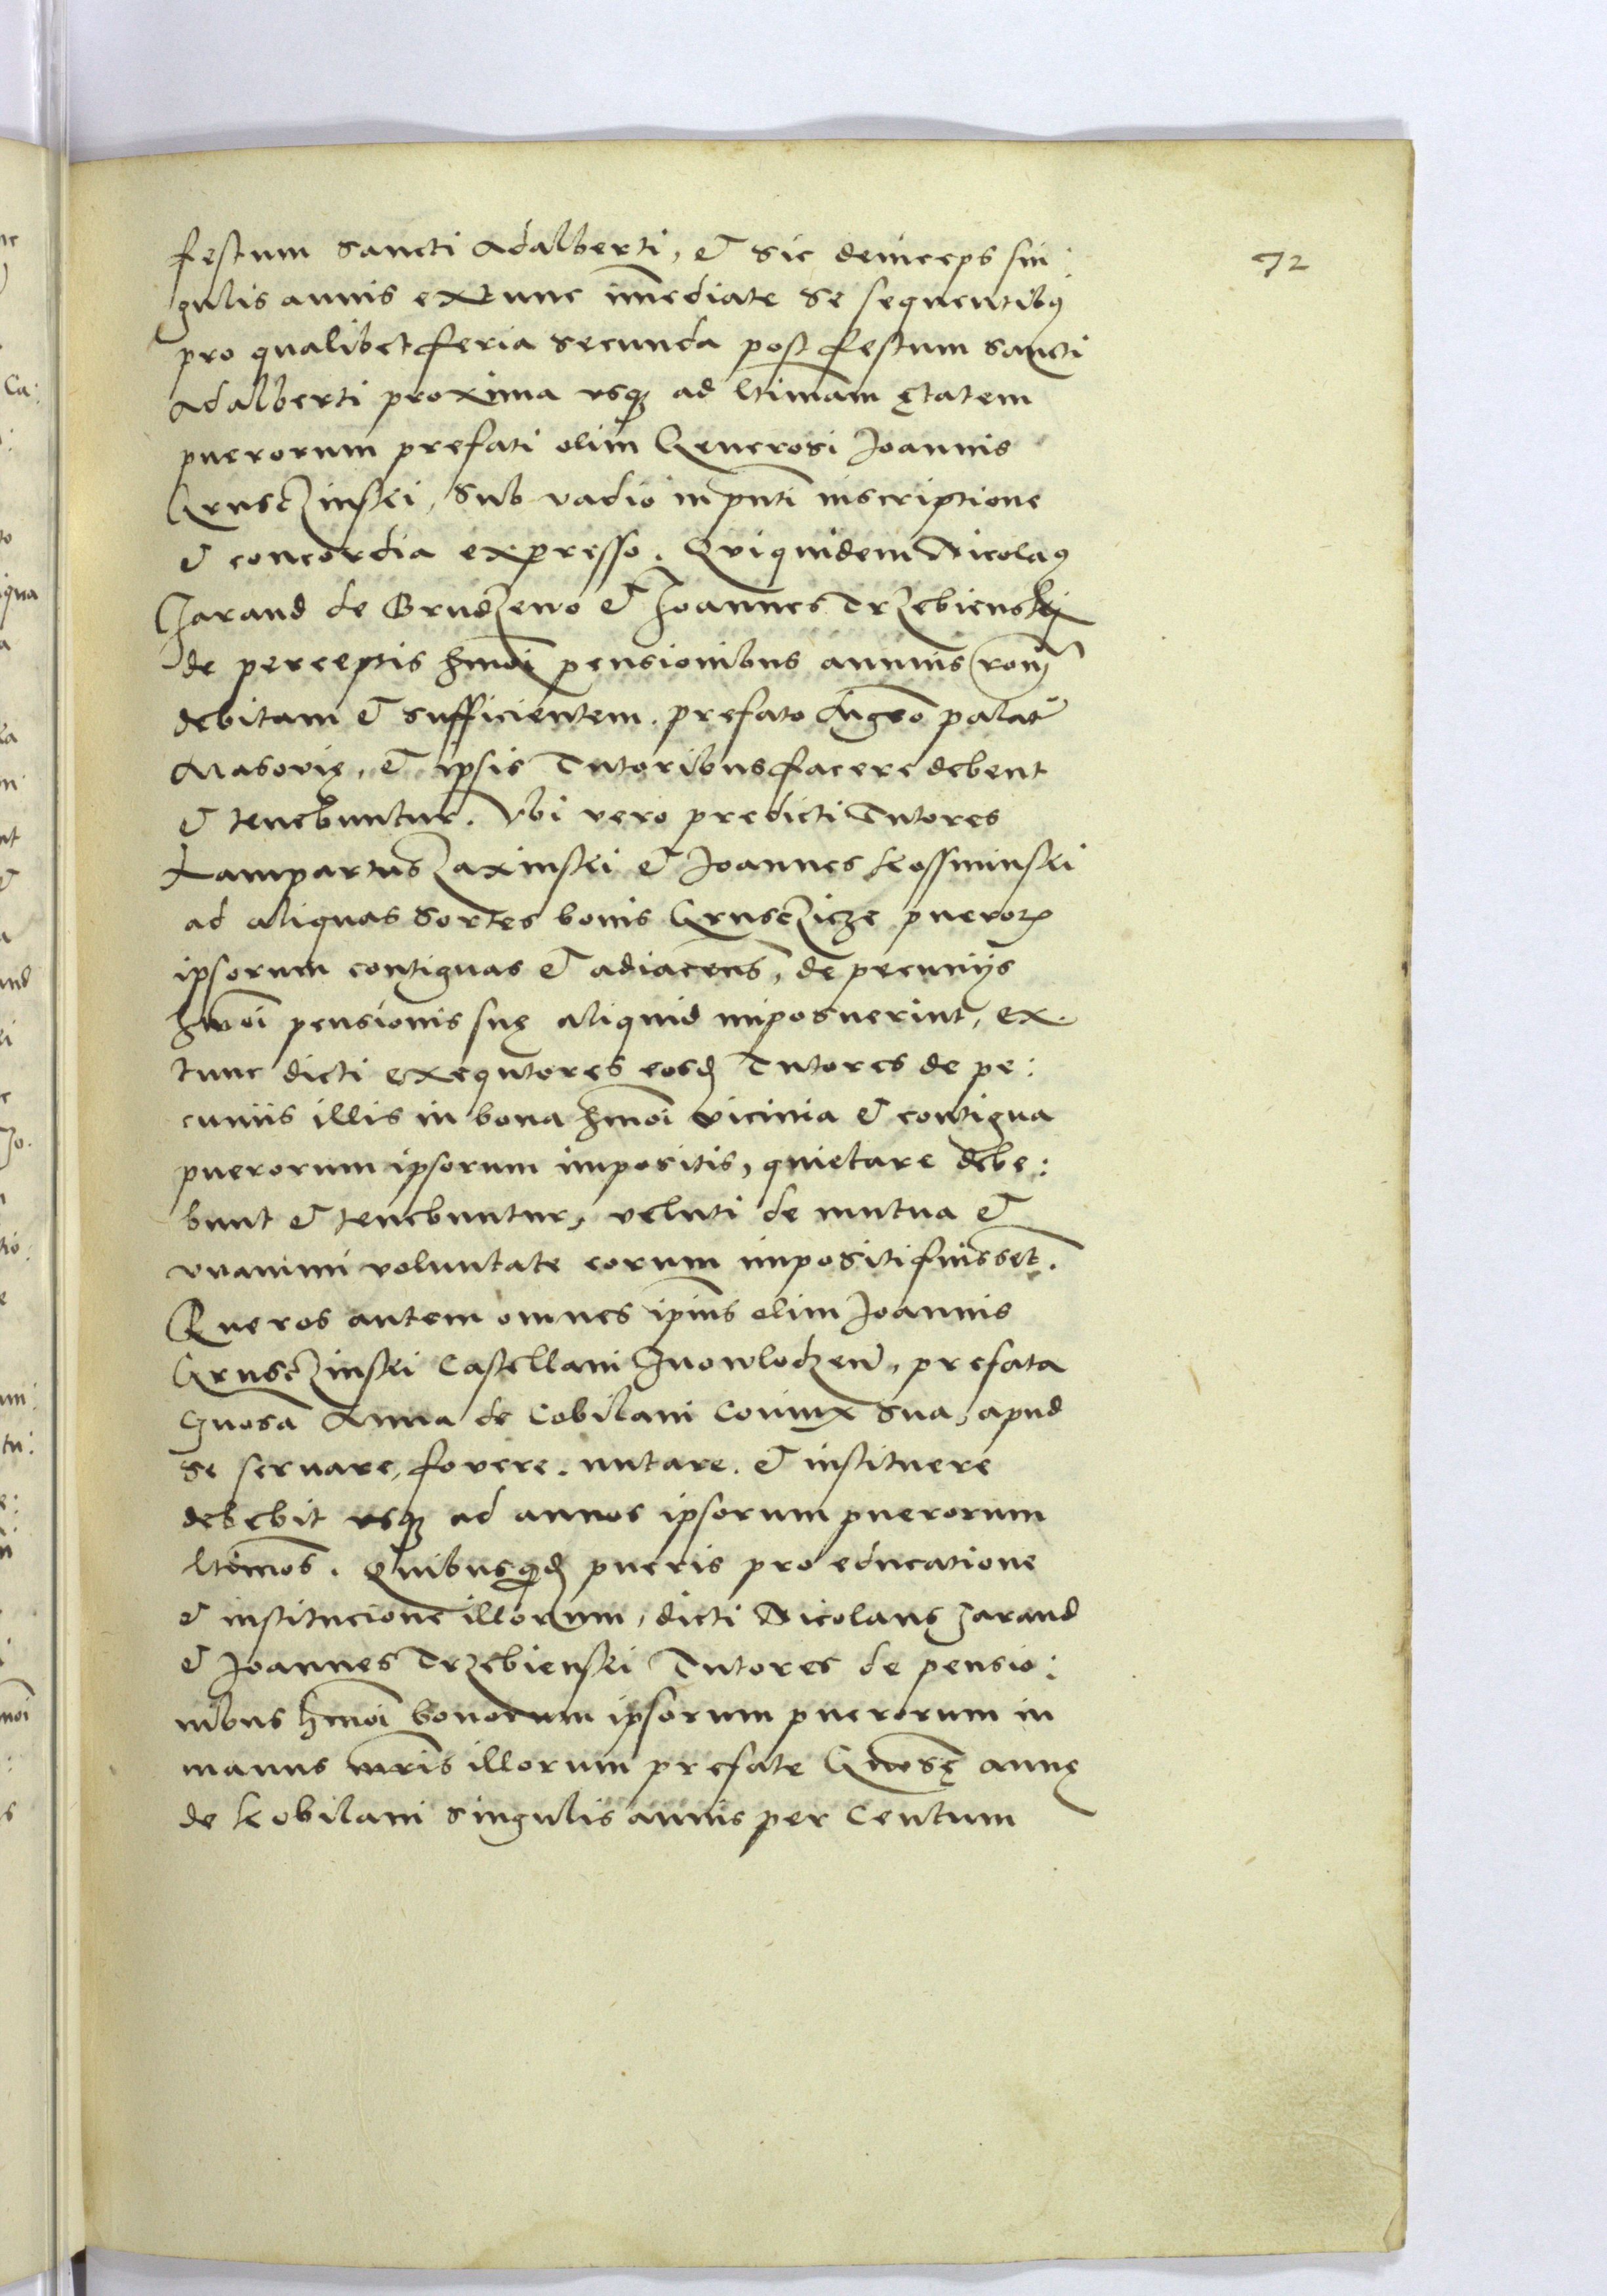 72
festum sancti Adalberti, et sic deinceps sin:
gulis annis extunc im̄ediate se sequentibꝯ
pro qualibet feria secunda post festum sancti
Adalberti proxima usqꝫ ad ltimam ętatem
puerorum prefati olim Generosi Joannis
GrusczJinskj, sub vadio in pn̄ti inscriptione
et concordia expresso. Quiquidem Nicolaꝯ
Jarand de Brudzewo et Joannes Trzebienskj
de perceptis hmōi pensionibus annuis ron̄
debitam et sufficientem. prefato Mg̅co palat̄
Masovię, et ipsis Tutoribus facere debent
et tenebuntur. Vbi vero predicti Tutores
Lampartus Zaxinski et Joannes Kossminski
ad aliquas sortes bonis Grusczicze pueroꝝ
ipsorum contiguas et adiacen̄s, de pecunijs
hmōi pensionis suę aliquid imposuerint, ex.
tunc dicti exequtores eosd̄ Tutores de pe:
cuniis illis in bona hmōi vicinia et contigua
puerorum ipsorum impositis, quietare debe:
bunt et tenebuntur, veluti de mutua et
unanimi voluntate eorum impositi fuissēt.
Pueros autem omnes ip̄ius olim Joannis
Grusczinski Castellani Inowlodzen̄, prefata
Gn̄osa Anna de Cobilani Coniunx sua, apud
se servare, fovere. nutare. et instituere
debebit usqꝫ ad annos ipsorum puerorum
ltimos. Quibusqd̄ pueris pro educatione
et institucione illorum, dicti Nicolaus Jarand
et Joannes Trzebienski Tutores de pensio:
nibus hmōi bonorum ipsorum puerorum in
manus mr̄is illorum prefate Gn̄osę annę
de Kobilani singulis annis per Centum